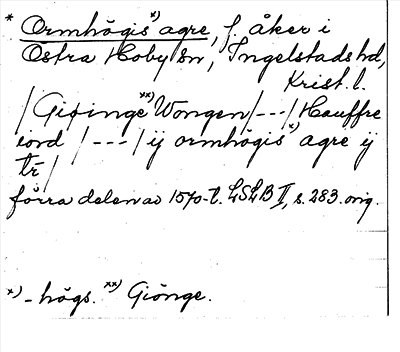 * Ormhögis x) agre, f. åker i
Östra Hoby sn, Ingelstads hd,
Krist. l.
/Giöinge xx) Wongen/---/Hauffre
iord /---/ ij ormhögis x) agre ij
tr̄/
förra delen av 1570-t. LSLB II, s. 283. orig.
x) -högs. xx) Giönge.